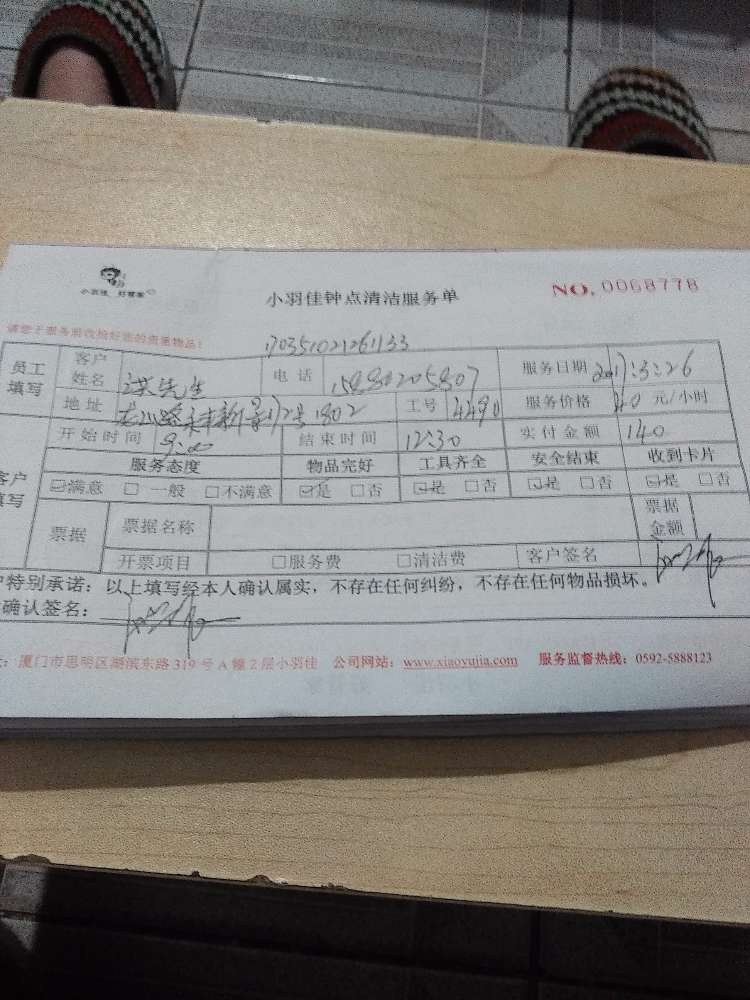 小羽佳 好管家
小羽佳钟点清洁服务单
NO. 0068778
请您于服务前收捡好您的贵重物品！
170351021261133
员工填写 客户姓名 洪先生 电话 15880205807 服务日期 2017:3:26
地址 1802 工号 4490 服务价格 40 元/小时
开始时间 9:00 结束时间 12:30 实付金额 140
客户填写 服务态度 物品完好 工具齐全 安全结束 收到卡片
☑满意 □一般 □不满意 ☑是 □否 ☑是 □否 ☑是 □否 ☑是 □否
票据 票据名称 票据金额
开票项目 □服务费 □清洁费 客户签名
户特别承诺：以上填写经本人确认属实，不存在任何纠纷，不存在任何物品损坏。
确认签名：
厦门市思明区湖滨东路319号A幢2层小羽佳 公司网站：www.xiaoyujia.com 服务监督热线：0592-5888123